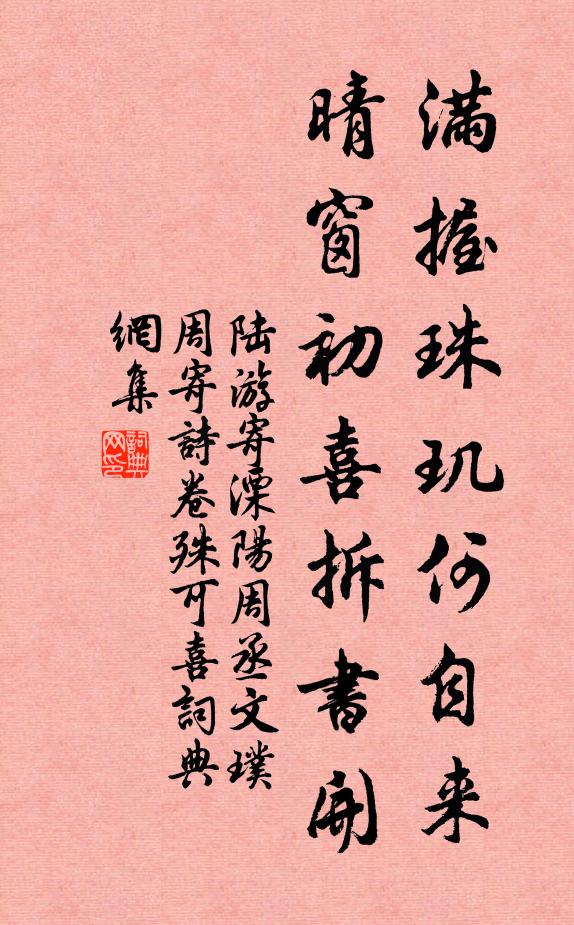 满握珠玑何自来
晴窗初喜拆書開
陆游寄溧陽周丞文璞
周寄詩卷殊可喜詞典
網集
詞典
网印